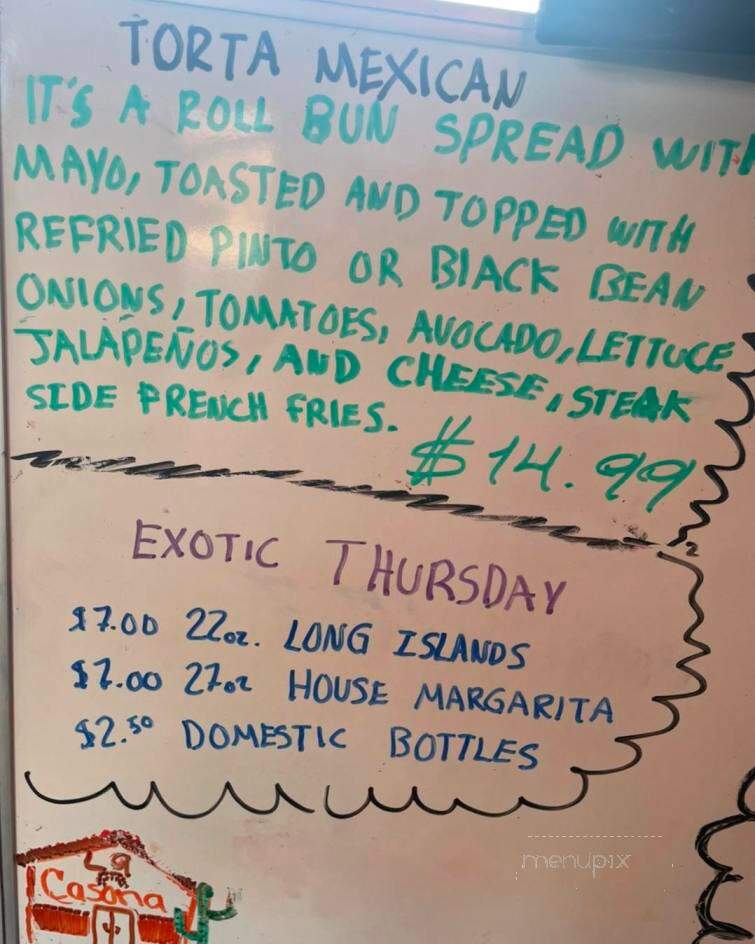 TORTA MEXICAN
IT'S A ROLL BUN SPREAD WITH
MAYO, TOASTED AND TOPPED WITH
REFRIED PINTO OR BLACK BEAN
ONIONS, TOMATOES, AVOCADO, LETTUCE
JALAPEÑOS, AND CHEESE, STEAK
SIDE PRENCH FRIES.
$14.99
EXOTIC THURSDAY
$7.00 22oz. LONG ISLANDS
$7.00 27oz HOUSE MARGARITA
$2.50 DOMESTIC BOTTLES
menupix
La
Casona